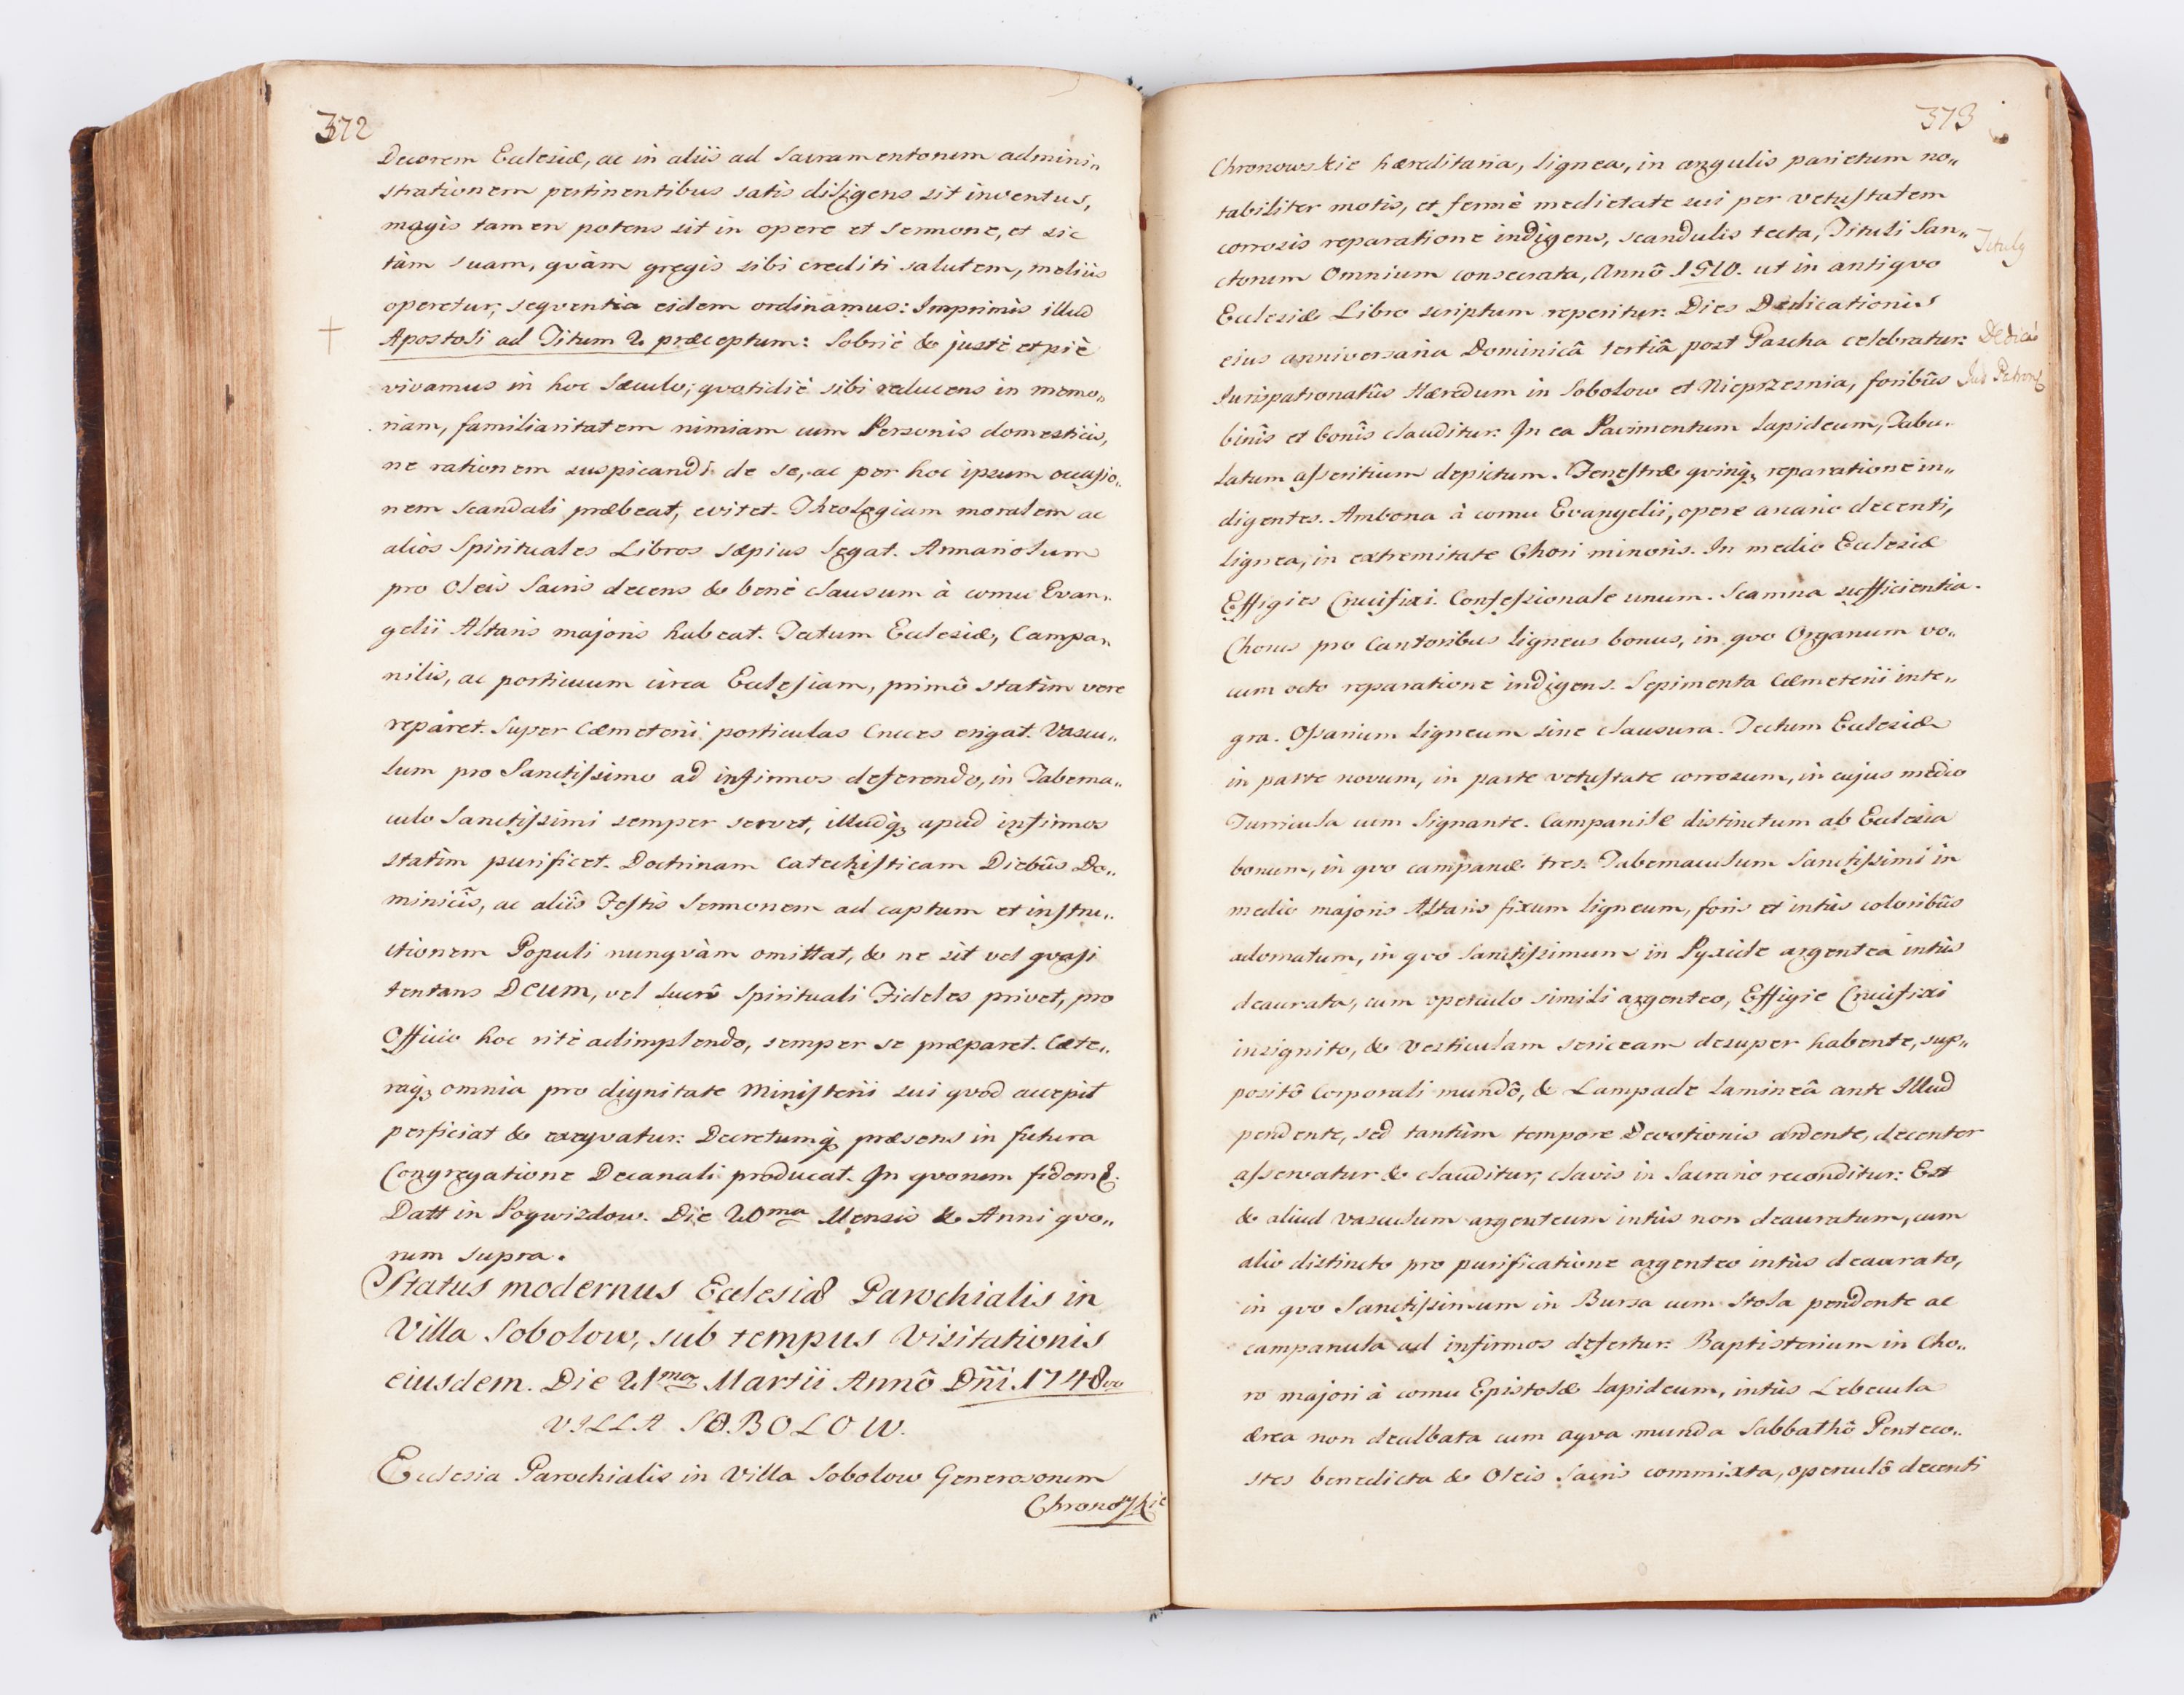 372
Decorem Ecclesiæ, ac in aliis ad Sacramentorum admini„
strationem pertinentibus satis diligens sit inventus,
magis tamen potens sit in opere et Sermone, et sic
tàm suam, qvàm gregis sibi crediti salutem, meliùs
operetur, seqventia eidem ordinamus: Imprimis illud
Apostoli ad Titum 2. præceptum: Sobriè & justè et piè
vivamus in hoc Sæculo; qvotidiè sibi reducens in memo„
riam, familiaritatem nimiam cum Personis domesticis,
ne rationem suspicandi de se, ac per hoc ipsum occasio„
nem scandali præbeat, evitet. Theologiam moralem ac
alios Spirituales Libros sæpius legat. Armariolum
pro Oleis Sacris decens & benè clausum à cornu Evan„
gelii Altaris majoris habeat. Tectum Ecclesiæ, Campa„
nilis, ac porticuum circa Ecclesiam, primô statim vere
reparet. Super Cæmeterii porticulas Cruces erigat. Vascu„
lum pro Sanctissimo ad infirmos deferendo, in Taberna„
culo Sanctissimi semper servet, illudq; apud infirmos
statim purificet. Doctrinam Catechisticam Diebûs Do„
minicîs, ac aliîs Festis Sermonem ad captum et instru„
ctionem Populi nunqvàm omittat, & ne sit vel qvasi
tentans DEUM, vel lucrô Spirituali Fideles privet, pro
Officio hoc ritè adimplendo, semper se præparet. Cæte„
raq; omnia pro dignitate Ministerii sui qvod accepit
perficiat & exeqvatur: Decretumq; præsens in futura
Congregatione Decanali producat. In qvorum fidem &.
Datt in Pogwizdow. Die 20ma Mensis & Anni qvo„
rum supra.
Status modernus Ecclesiæ Parochialis in
Villa Sobolow, sub tempus Visitationis
eiusdem. Die 21ma Martii Annô Dñi 1748vo
VILLA SOBOLOW.
Ecclesia Parochialis in Villa Sobolow Generosorum
Chronowskie
373
Chronowskie hæreditaria, lignea, in angulis parietum no„
tabiliter motis, et fermè medietate sui per vetustatem
corrosis reparatione indigens, scandulis tecta, Tituli San„
Tituly
ctorum Omnium consecrata, Annô 1510. ut in antiqvo
Ecclesiæ Libro scriptum reperitur: Dies Dedicationis
eius anniversaria Dominicâ tertiâ post Pascha celebratur:
Dedica
Jurispatronatûs Hæredum in Sobolow et Nieprzesnia, foribûs
Jus Patron
binîs et bonîs clauditur: In ea Pavimentum lapideum, Tabu„
latum asseritium depictum. Fenestræ qvinq; reparatione in„
digentes. Ambona à cornu Evangelii, opere arcario decenti,
lignea, in extremitate Chori minoris. In medio Ecclesiæ
Effigies Crucifixi. Confessionale unum. Scamna sufficientia.
Chorus pro Cantoribus ligneus bonus, in qvo Organum vo„
cum octo reparatione indigens. Sepimenta Cæmeterii inte„
gra. Ossarium ligneum sine clausura. Tectum Ecclesiæ
in parte novum, in parte vetustate corrosum, in cujus medio
Turricula cum Signante. Campanile distinctum ab Ecclesia
bonum, in qvo campanæ tres. Tabernaculum Sanctissimi in
medio majoris Altaris fixum ligneum, foris et intùs coloribûs
adornatum, in qvo Sanctissimum in Pyxide argentea intùs
deaurata, cum operculo simili argenteo, Effigie Crucifixi
insignito, & Vesticulam sericeam desuper habente, sup„
positô Corporali mundô, & Lampade lamineâ ante Illud
pendente, sed tantùm tempore Devotionis ardente, decenter
asservatur & clauditur; clavis in Sacrario reconditur: Est
& aliud vasculum argenteum intùs non deauratum, cum
alio distincto pro purificatione argenteo intùs deaurato,
in qvo Sanctissimum in Bursa cum Stola pendente ac
campanula ad infirmos defertur: Baptisterium in Cho„
ro majori à cornu Epistolæ lapideum, intùs Lebecula
ærea non dealbata cum aqva munda Sabbathô Penteco„
stes benedicta & Oleis Sacris commixta, operculô decenti